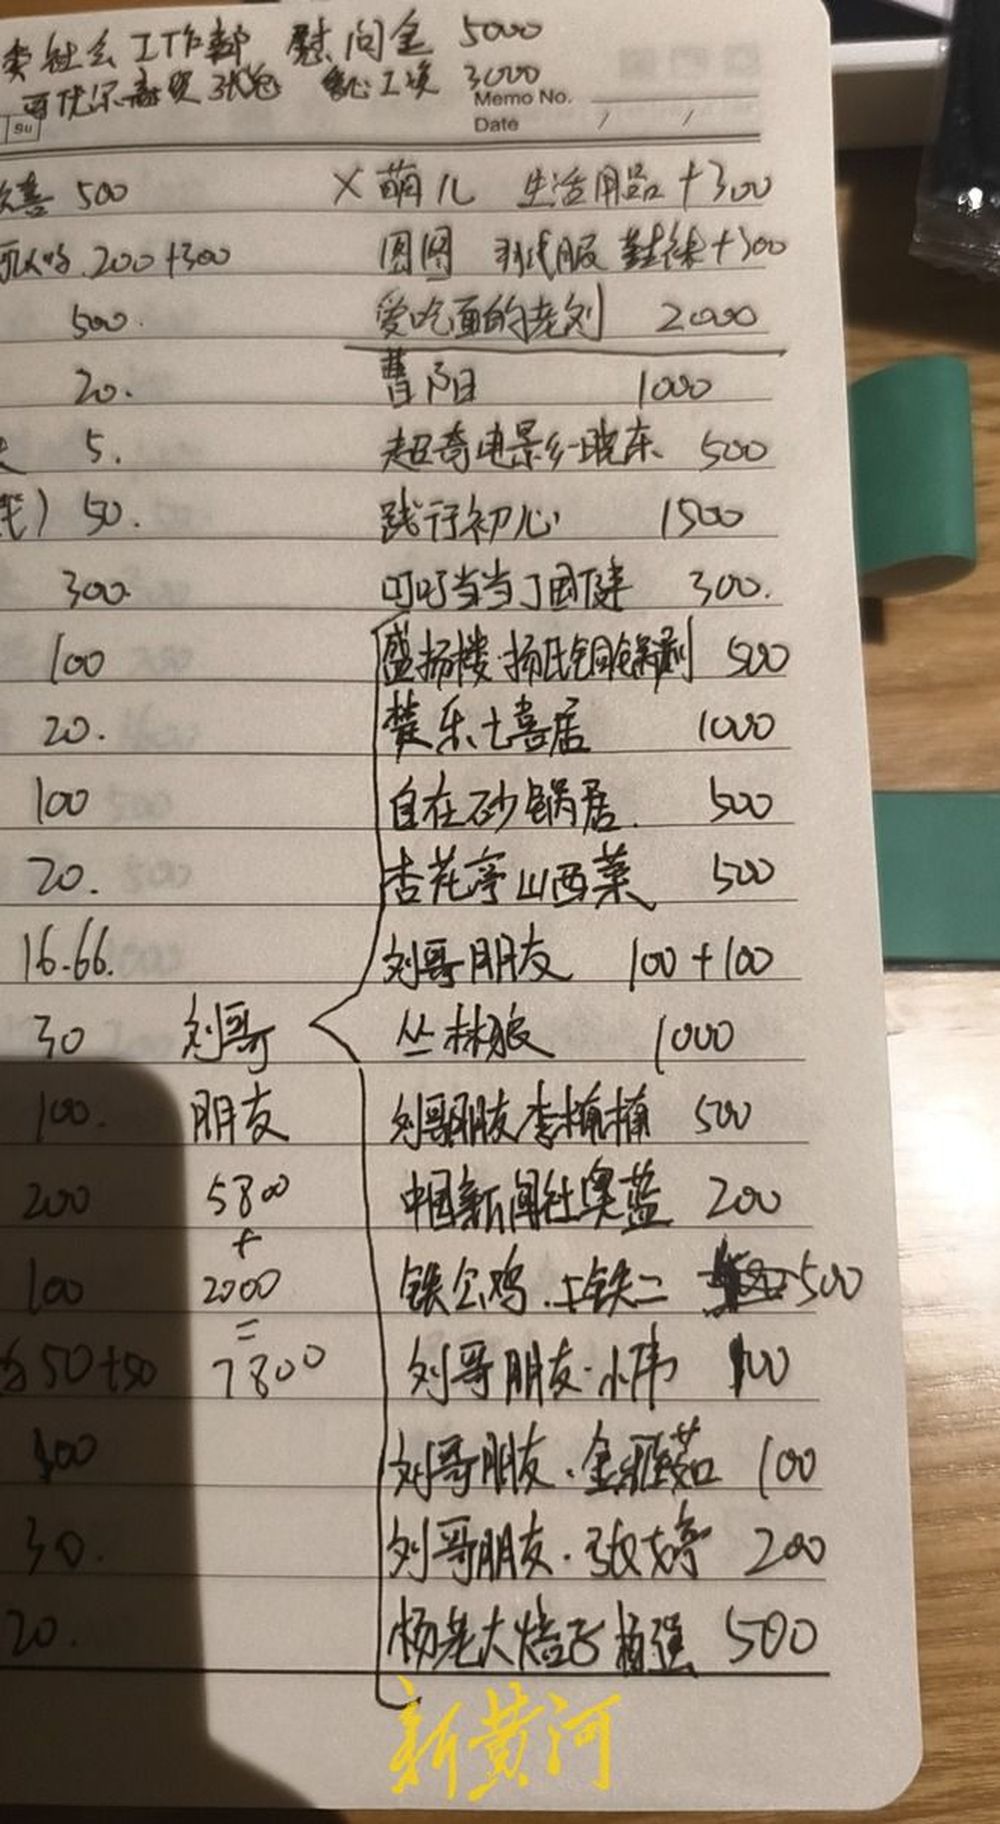 委社会工作部 慰问金 5000
3000
Memo No.
Su
Date / /
喜 500 × 萌儿 生活用品+300
200+300 圆圆 羽绒服 鞋袜+300
500. 爱吃面的老刘 2000
20. 曹阳 1000
5. 超奇电影乡晓东 500
50. 践行初心 1500
300 叮叮当当丁国健 300.
100 盛扬楼·扬氏铜锅涮 500
20. 楚乐七喜居 1000
100 自在砂锅居. 500
20. 杏花亭山西菜 500
16.66. 刘哥朋友 100+100
30 刘哥 丛林狼 1000
100. 朋友 刘哥朋友李楠楠 500
200 5800 中国新闻社奥蓝 200
+
100 2000 铁公鸡.上铁二 500
=
50+50 7800 刘哥朋友·小伟 100
100 刘哥朋友.金雅茹 100
30. 刘哥朋友.张婷 200
20. 杨老大焙子杨强 500
新黄河